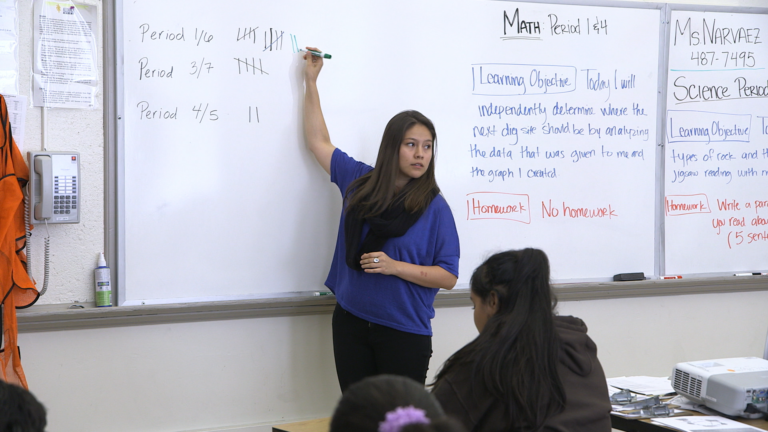 Period 1/6
Period 3/7
Period 4/5
MATH: Period 1 & 4
Learning Objective Today I will
independently determine where the
next dig site should be by analyzing
the data that was given to me and
the graph I created.
Homework No homework
Ms Narvaez
487-7495
Science Period
Learning Objective
types of rock and
jigsaw reading with
Homework Write a
you read
(5